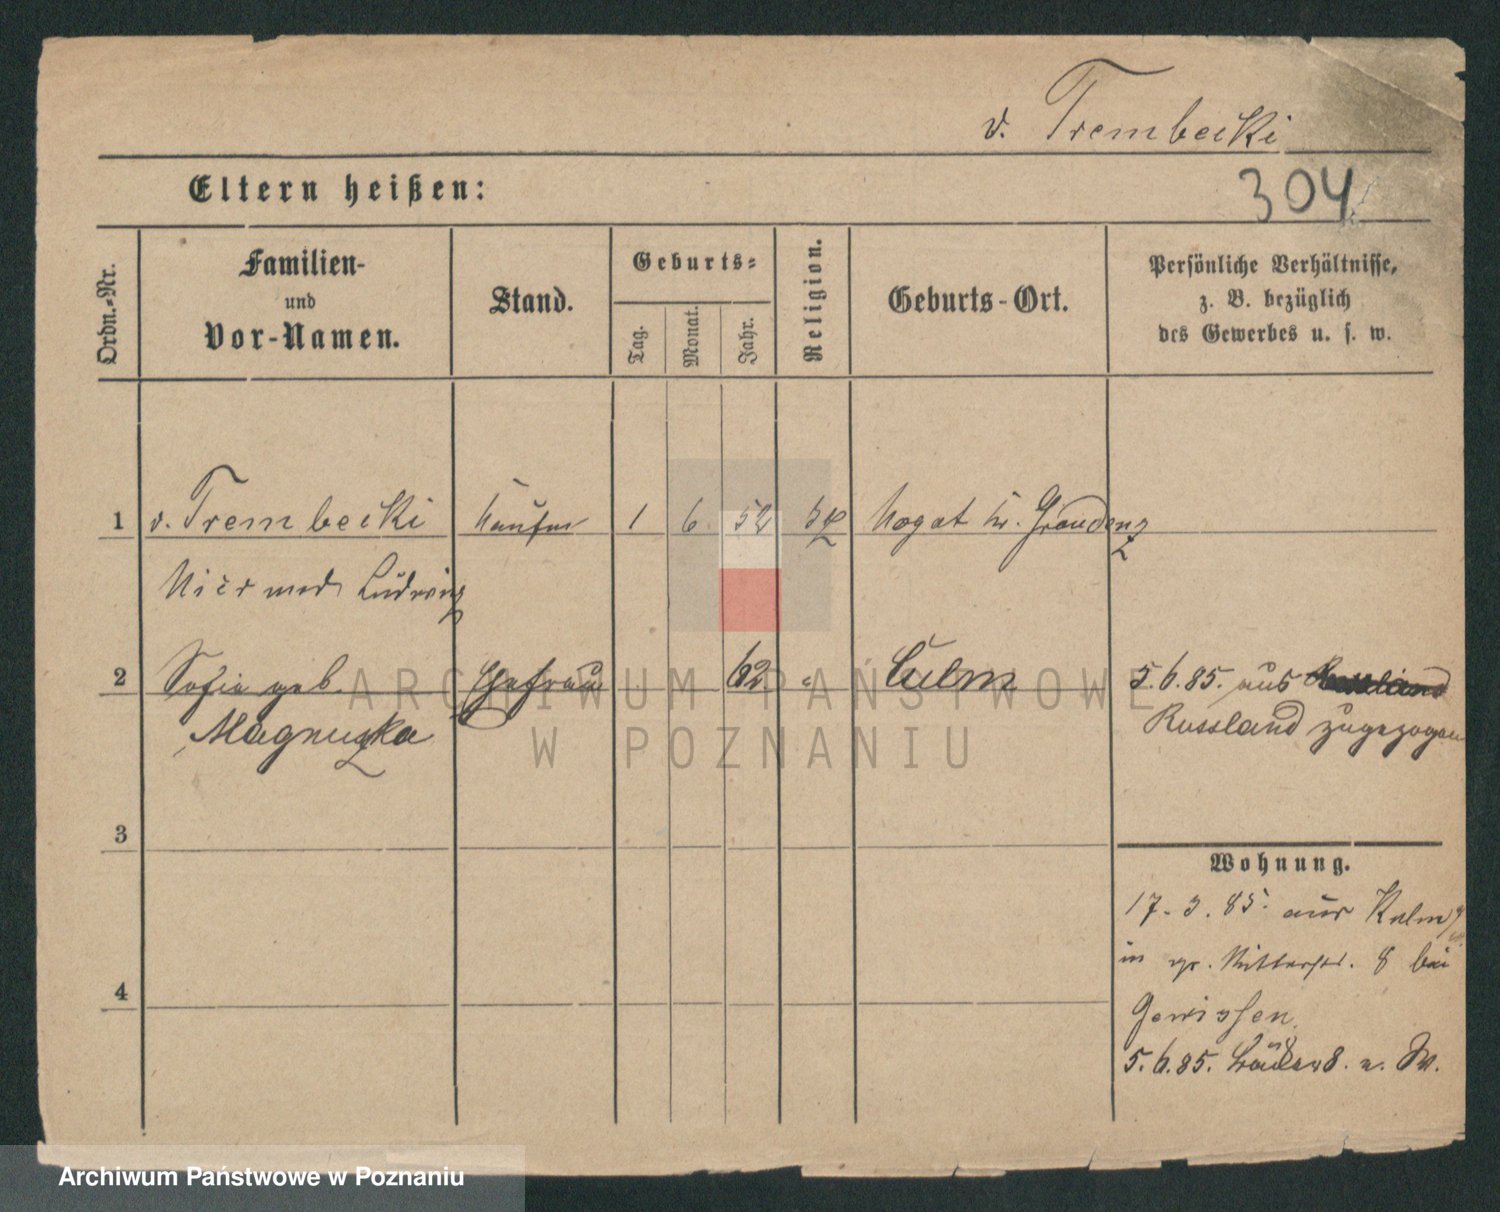 v. Trembecki
Eltern heißen:
304
Ordn.-Nr.
Familien-
und
Vor-Namen.
Stand.
Geburts-
Tag.
Monat.
Jahr.
Religion.
Geburts-Ort.
Persönliche Verhältnisse,
z. B. bezüglich
des Gewerbes u. s. w.
1 v. Trembecki Kaufm 1 6 52 Nogat Kr. Graudenz
Ludwig
2 Sofia geb. Ehefrau 62 " Culm 5.6.85. aus
Magnuszka Russland zugezogen
ARCHIWUM PAŃSTWOWE
W POZNANIU
3
Wohnung.
17.3.85. aus Kulm
in gr. Ritterstr. 8 bei
4
Gewissen
5.6.85. 8. a. W.
Archiwum Państwowe w Poznaniu